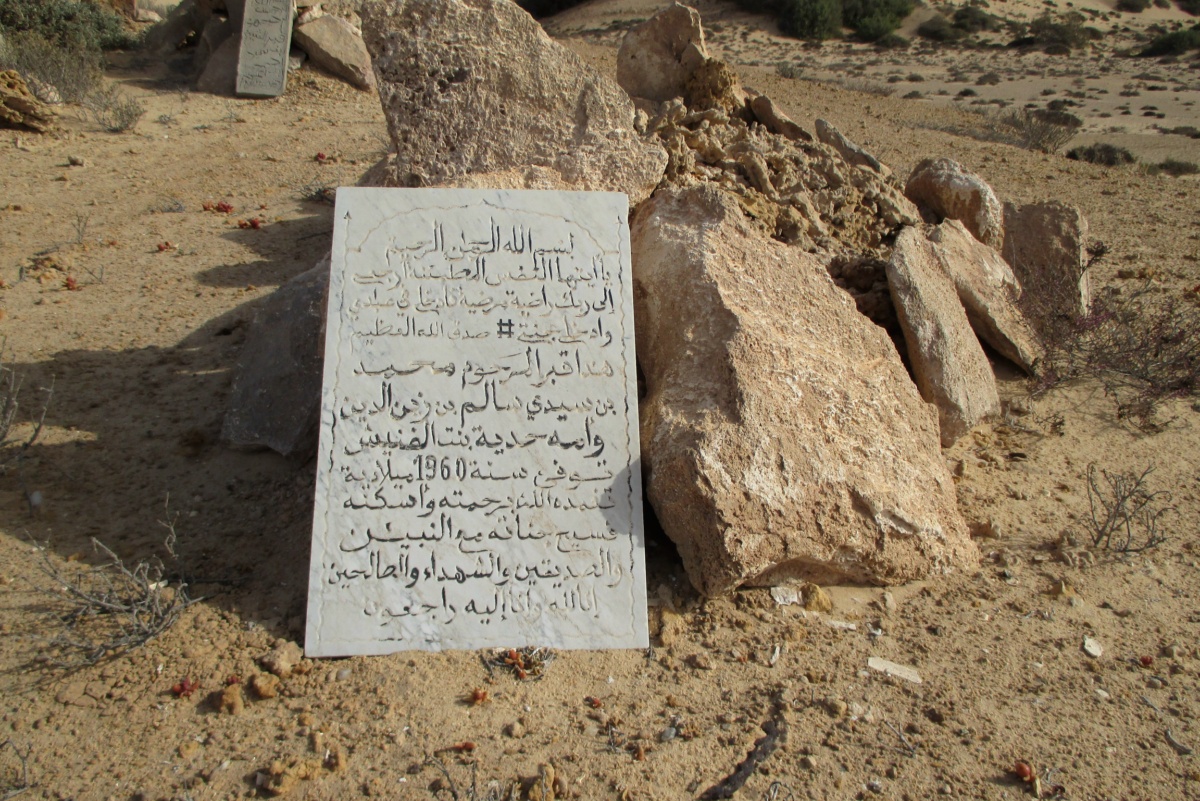 بسم الله الرحمن الرحيم
يا أيتها النفس المطمئنة ارجعي
إلى ربك راضية مرضية فادخلي في عبادي
وادخلي جنتي # صدق الله العظيم
هذا قبر المرحوم محمد
بن سيدي سالم بن زين الدين
وامه حدية بنت الفنيش
توفي سنة 1960 ميلادية
تغمده الله برحمته وأسكنه
فسيح جناته مع النبيئن
والصديقين والشهداء والصالحين
إنا لله وإنا إليه راجعون